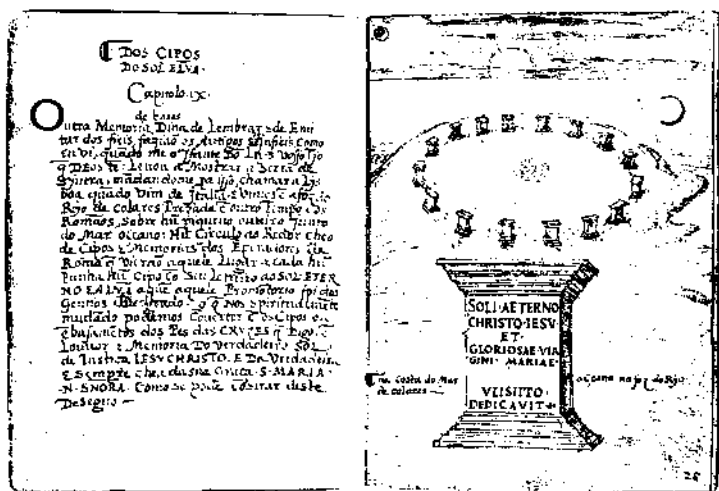 DOS CIPOS
DO SOL ELVA.
Capitolo. IX.
de fazer
Outra Memoria Dina de Lembrar, de Emi
tar dos fieis os Antigos Infieis Como
eu vi, quãdo me o Ifante Dõ Lvis Vosso
q̃ DEOS te: Levou a Mostrar a Serra de
Syntra, mãdandome pa isso chamar a Lis
boa quãdo Vim de Italia
Rio de Colares outro tempo dos
Romãos, Sobre hũ piqueno outeiro Junto
do Mar oceano: Hũ Circulo ao Redor Cheo
de Cipos e Memorias dos Emperadores de
Roma q̃ Vierão aquele Lugar e cada hũ
Punha hũ Cipo cõ Seu Letreiro ao SOL ETER
NO E A LVA a quẽ aquele Promotorio foi dos
Gentios q̃ Nos spiritualmente
mudado podemos Converter os Cipos em
ẽbasamẽtos dos Pes das CRVZES q̃
Louvor e Memoria Do verdadeiro SOL
da Justiça IESV CHRISTO. E Da Verdadeira
e Sempre chea de sua Graça S. MARIA
N. SNORA. Como se pode cõsirar deste
Deseguo
SOLI AETERNO
CHRISTO IESV
ET
GLORIOSAE VIR
GINI MARIAE
VLISIPPO
DEDICAVIT
na Costa do Mar
de colares
oceano na foz do Rio
26